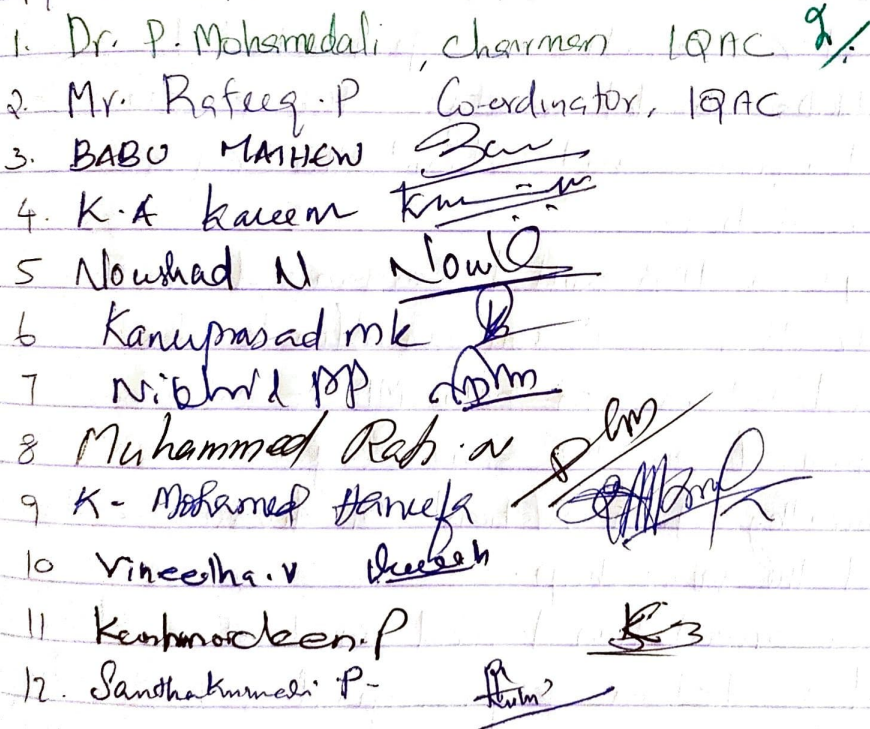 1. Dr. P. Mohamedali, Chairman IQAC
2. Mr. Rafeeq . P Co-ordinator, IQAC
3. BABU MATHEW
4. K. A Kareem
5 Noushad N
6 Kanuprasad mk
7 PP
8 Muhammed Rafi . N
9 K - Mohamed Haneefa
10 Vineetha . V
11 P
12. Santhakumari P -